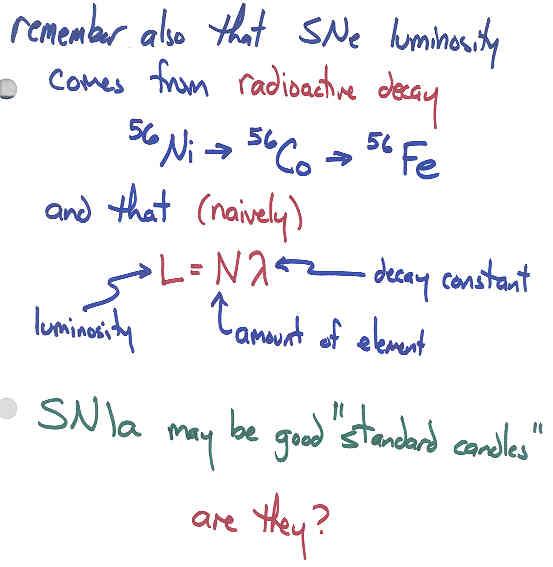 remember also that SNe luminosity
comes from radioactive decay
⁵⁶Ni → ⁵⁶Co → ⁵⁶Fe
and that (naively)
L = Nλ
decay constant
luminosity
amount of element
SN1a may be good "standard candles"
are they?